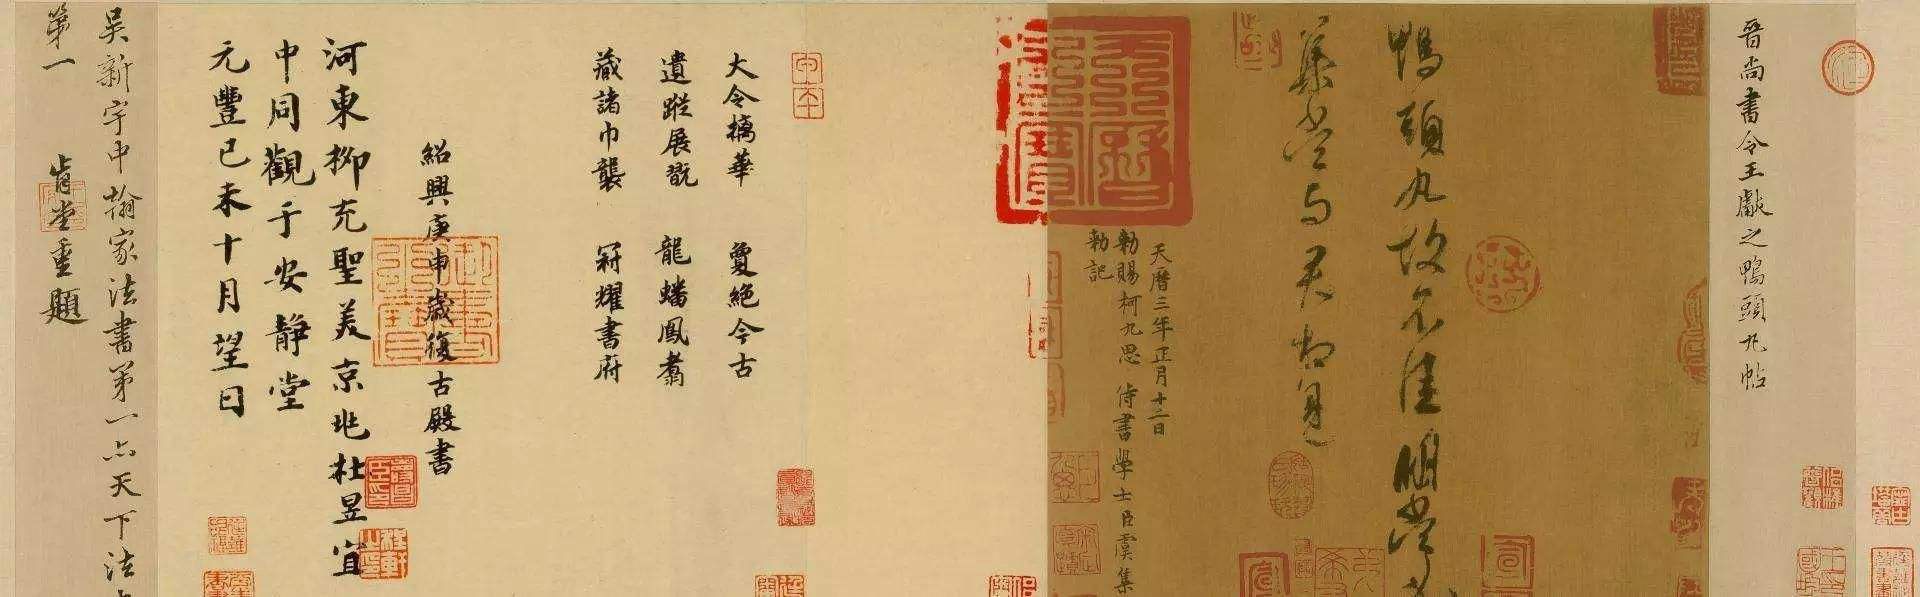 晉尚書令王獻之鴨頭丸帖
鴨頭丸故不佳明當
集當與君相見
天曆三年正月十二日
勅賜柯九思侍書學士臣虞集
勅記
天曆之寶
大令摛華 敻絕今古
遺蹤展翫 龍蟠鳳翥
藏諸巾襲 冠耀書府
紹興庚申歲復古殿書
河東柳充聖美京兆杜昱宜
中同觀于安靜堂
元豐己未十月望日
吳新宇中翰家法書第一亦天下法
第一 肯堂重題